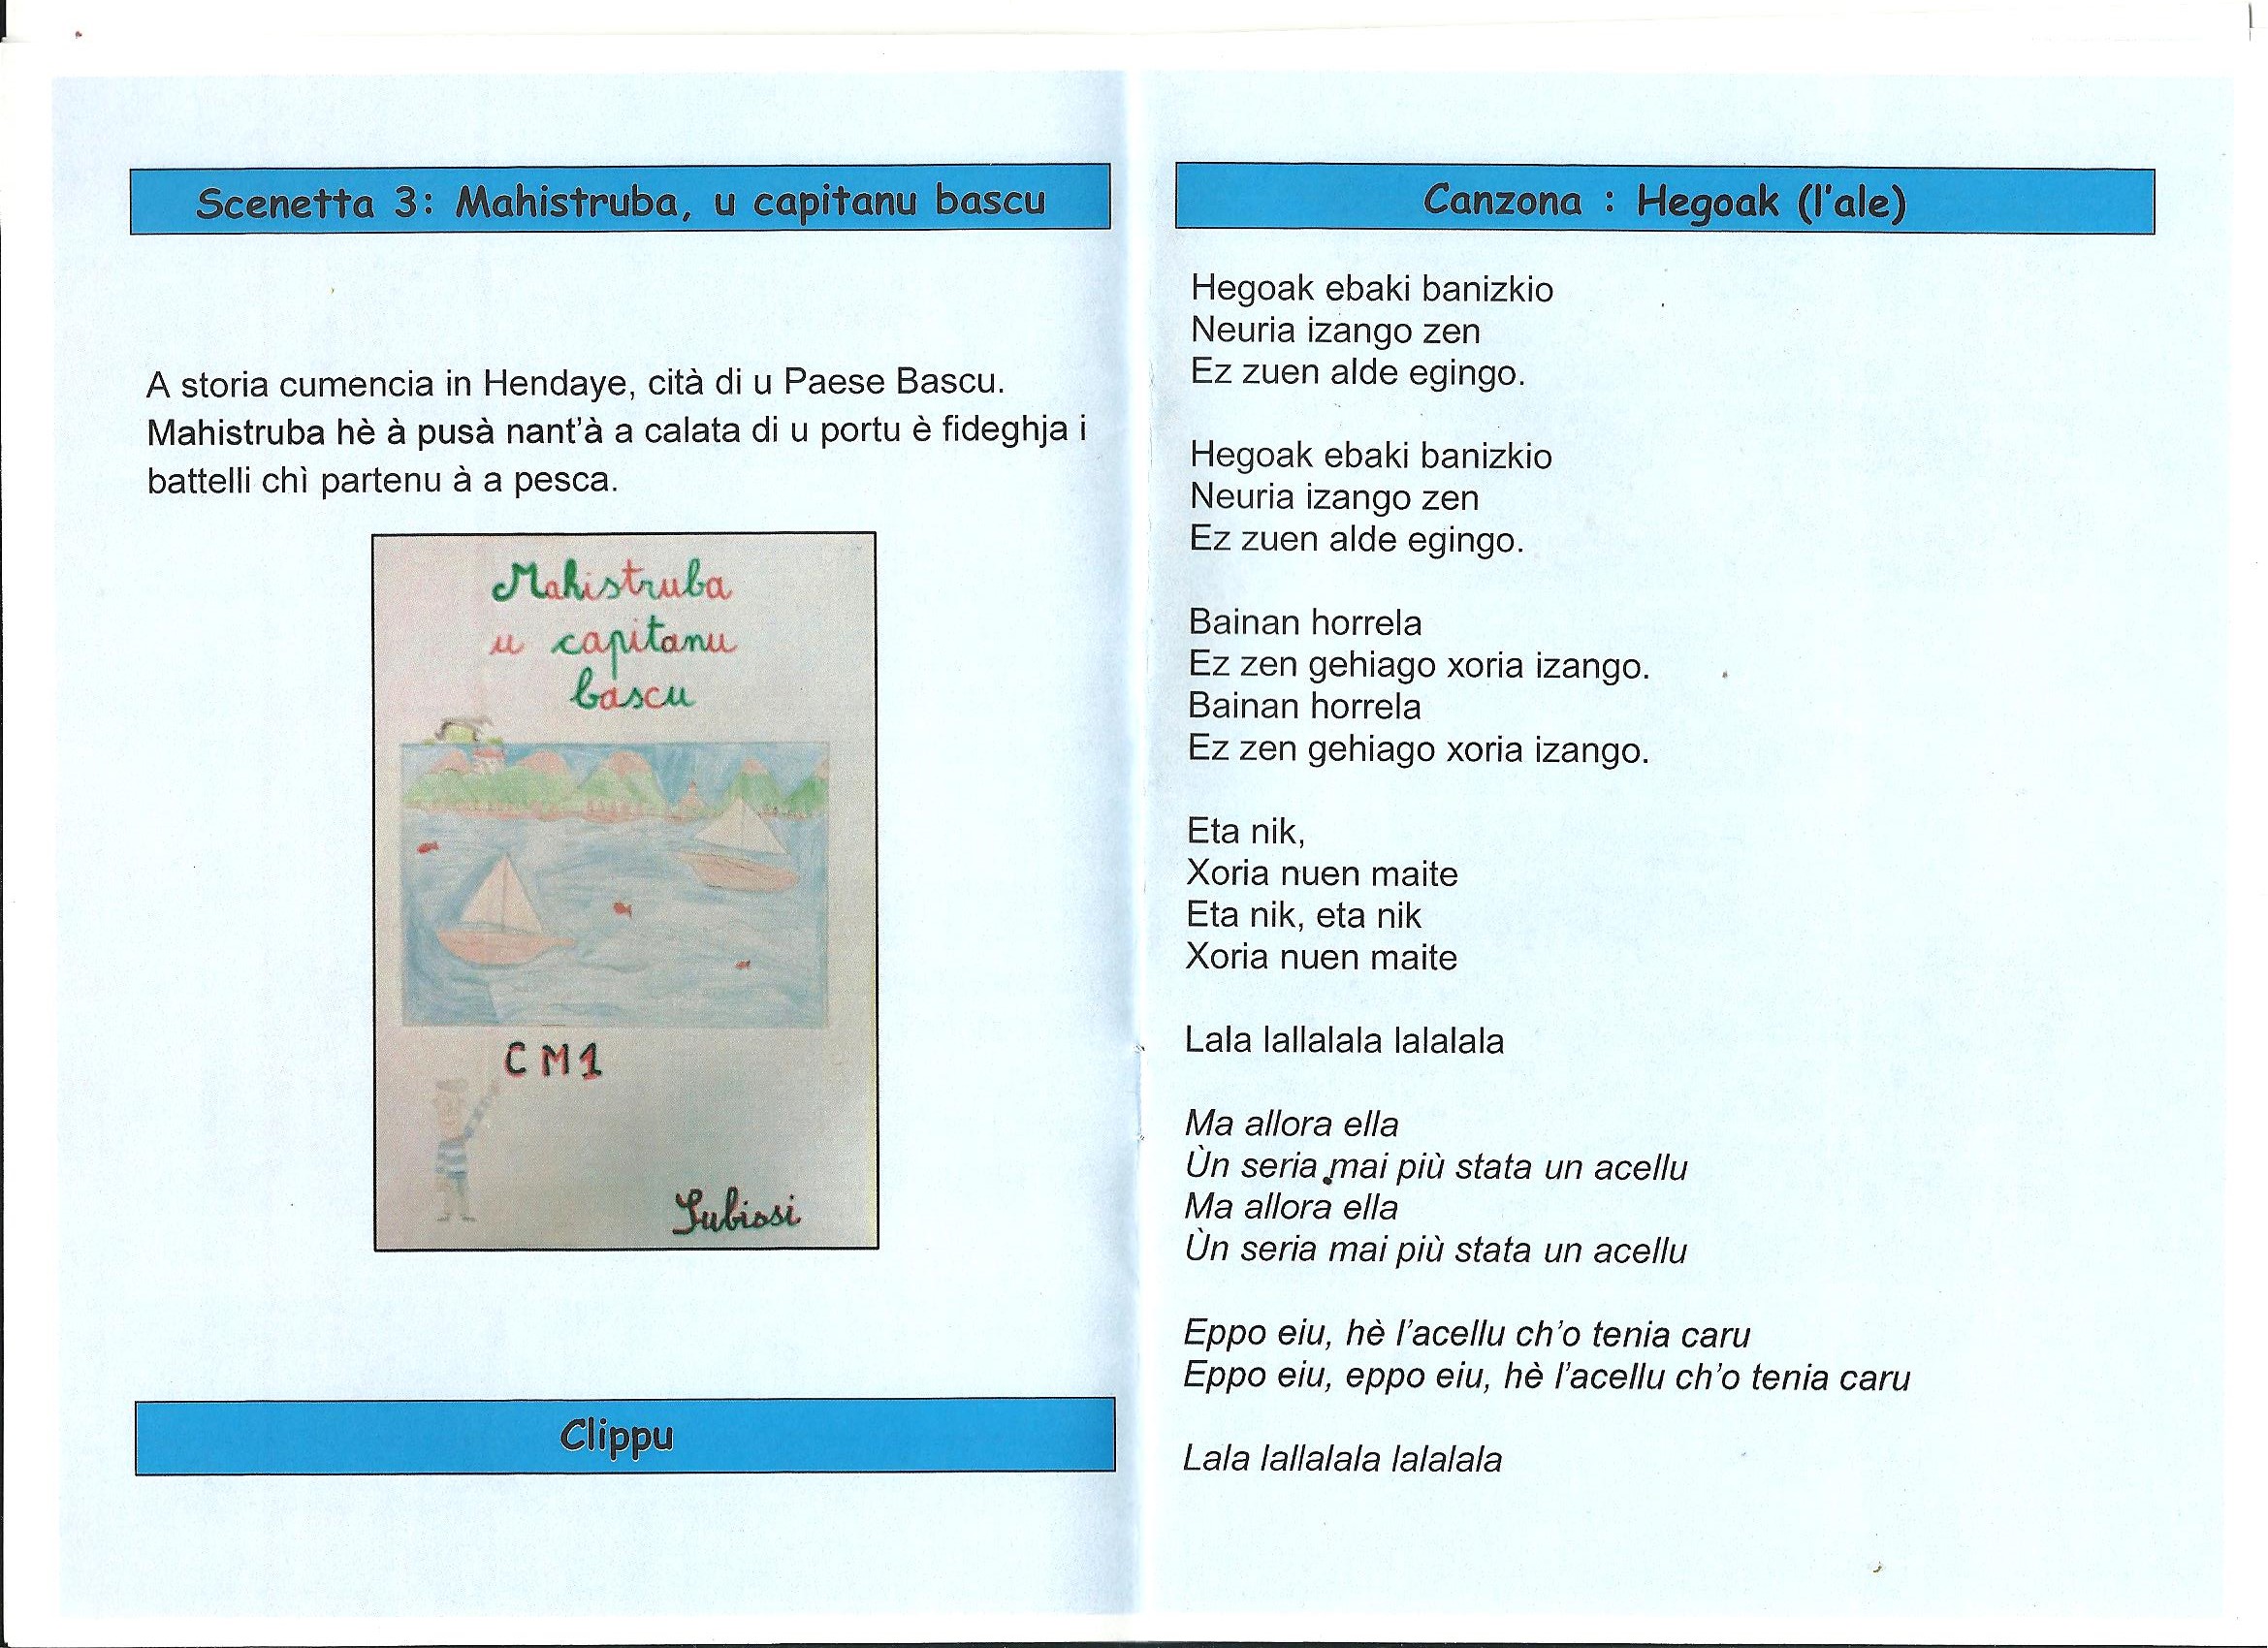 Scenetta 3: Mahistruba, u capitanu bascu
A storia cumencia in Hendaye, cità di u Paese Bascu.
Mahistruba hè à pusà nant'à a calata di u portu è fideghja i
battelli chì partenu à a pesca.
Mahistruba
u capitanu
bascu
CM1
Clippu
Canzona : Hegoak (l'ale)
Hegoak ebaki banizkio
Neuria izango zen
Ez zuen alde egingo.
Hegoak ebaki banizkio
Neuria izango zen
Ez zuen alde egingo.
Bainan horrela
Ez zen gehiago xoria izango.
Bainan horrela
Ez zen gehiago xoria izango.
Eta nik,
Xoria nuen maite
Eta nik, eta nik
Xoria nuen maite
Lala lallalala lalalala
Ma allora ella
Ùn seria mai più stata un acellu
Ma allora ella
Ùn seria mai più stata un acellu
Eppo eiu, hè l'acellu ch'o tenia caru
Eppo eiu, eppo eiu, hè l'acellu ch'o tenia caru
Lala lallalala lalalala